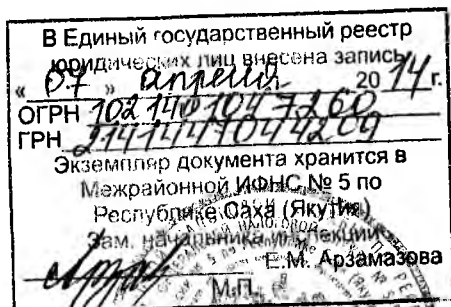 В Единый государственный реестр
юридических лиц внесена запись
« 07 » апреля 2014 г.
ОГРН 1021401047260
ГРН 2141447044209
Экземпляр документа хранится в
Межрайонной ИФНС № 5 по
Республике Саха (Якутия)
Зам. начальника инспекции
Е.М. Арзамазова
М.П.